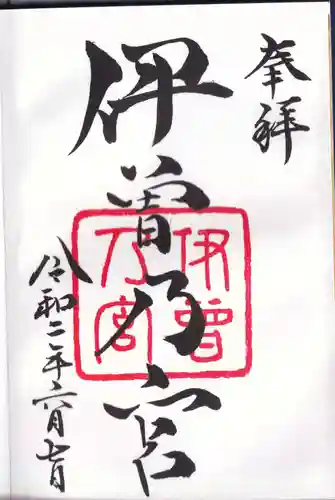 奉拝
伊曽乃宮
伊曽
乃宮
令和二年六月七日